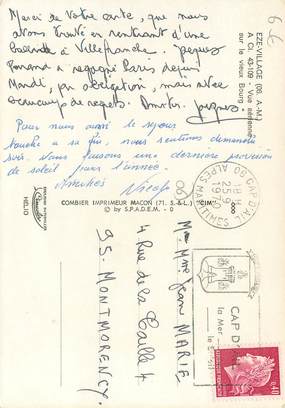 Merci de votre carte, que nous
avons trouvé en rentrant d'une
balade à Villefranche. Jacques
a regagné Paris depuis
Mardi, par obligation, mais avec
beaucoup de regrets. Amitiés
Pour nous aussi le séjour
touche à sa fin, nous rentrons dimanche
soir. Nous faisons une dernière provision
de soleil pour l'année.
Amitiés Nicole
EZE-VILLAGE (06 A.-M.)
CI. 43-109 "Vue aérienne"
sur le vieux Bourg
6€
COMBIER IMPRIMEUR MACON (71. S.-&-L.) "CIM"
© by S.P.A.D.E.M. - 0
HELIO
06 CAP D'AIL
ALPES MARITIMES
CAP D'
la Mer
0.40
Mr Mme Jean MARIE
4 Rue de la Taille 4
95. MONTMORENCY.